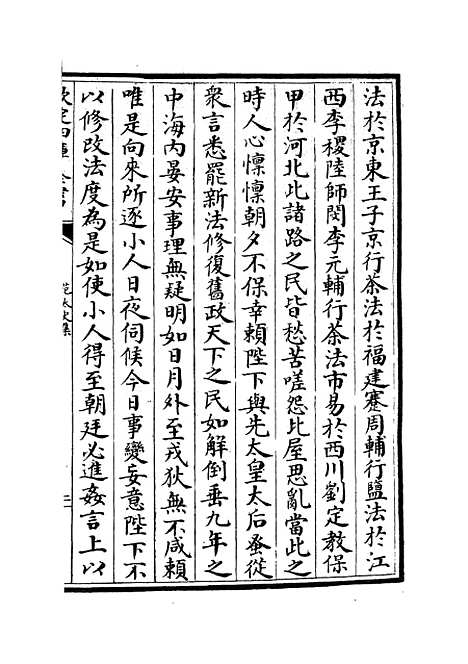 法於京東王子京行茶法於福建蹇周輔行鹽法於江
西李稷陸師閔李元輔行茶法市易於西川劉定教保
甲於河北此諸路之民皆愁苦嗟怨比屋思亂當此之
時人心懍懍朝夕不保幸賴陛下與先太皇太后蚤從
衆言悉罷新法修復舊政天下之民如解倒垂九年之
中海内晏安事理無疑明如日月外至戎狄無不咸賴
唯是向來所逐小人日夜伺候今日事變妄意陛下不
以修改法度為是如使小人得至朝廷必進姦言上以
欽定四庫全書
范太史集